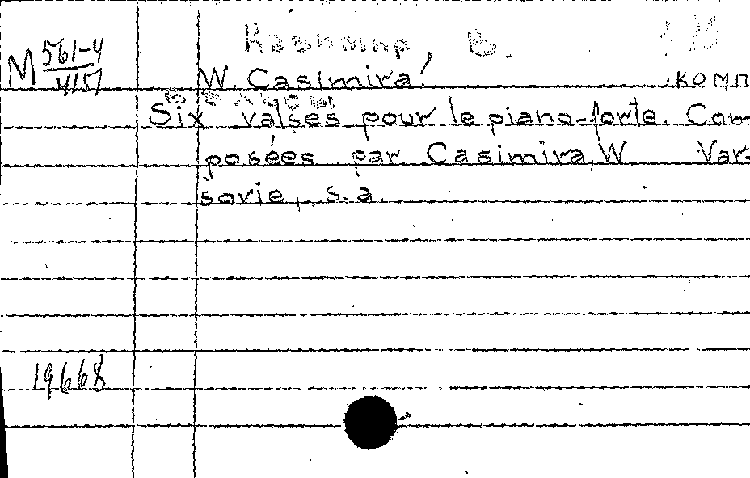 Казимир, В.
M 561-4
4151
W. Casimira! комп
Six valses pour le piano-forte. Com-
posées par Casimira W Var-
sovie, s.a.
19668